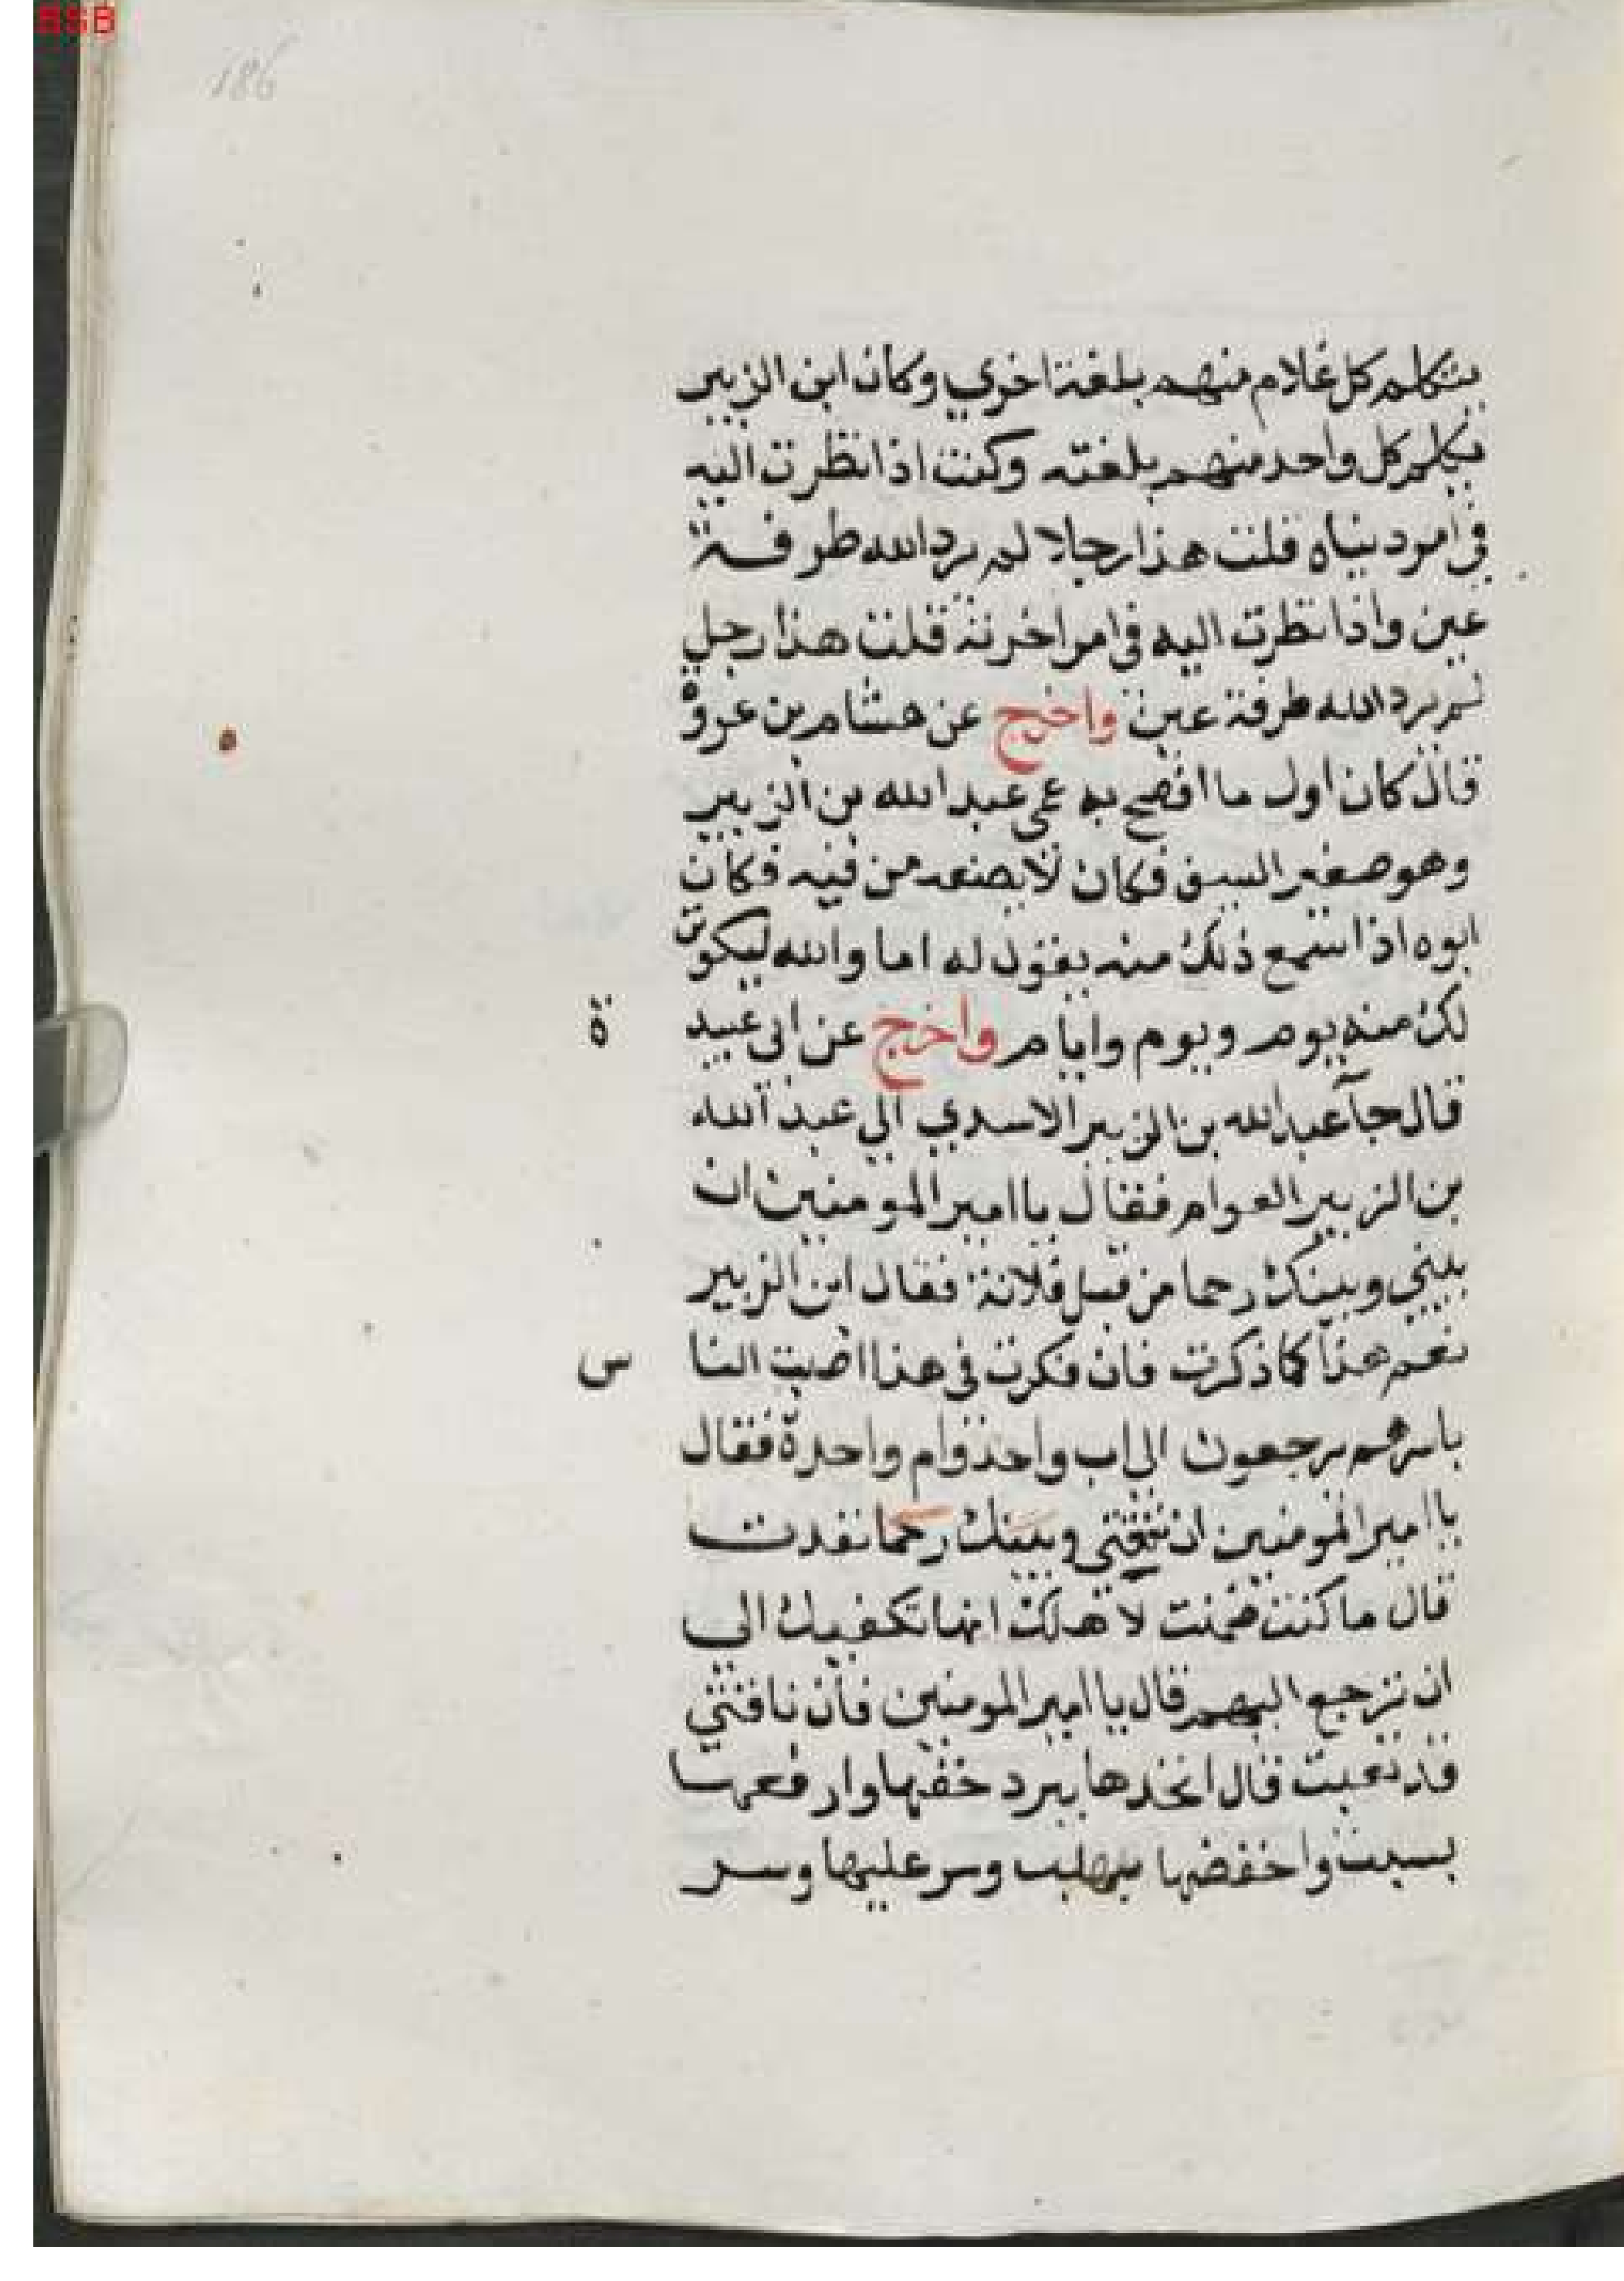 BSB
186
يتكلم كل غلام منهم بلغة اخري وكان ابن الزبير
يكلم كل واحد منهم بلغته وكنت اذا نظرت اليه
في امر دنياه قلت هذا رجلا لم يرد الله طرفة
عين واذا نظرت اليه في امر اخرته قلت هذا رجل
لم يرد الله طرفة عين واخرج عن هشام بن عروة
قال كان اول ما افصح به عمي عبد الله بن الزبير
وهو صغير السيف فكان لا يضعه من فيه فكان
ابوه اذا سمع ذلك منه يقول له اما والله ليكونن
لك منه يوم ويوم وايام واخرج عن ابي عبيد ة
قال جآ عبد الله بن الزبير الاسدي الي عبد الله
بن الزبير العوام فقال يا امير المومنين ان
بيني وبينك رحما من قبل فلانة فقال ابن الزبير
نعم هذا كما ذكرت فان فكرت في هذا اصبت النا س
باسرهم يرجعون الي اب واحد وام واحدة فقال
يا امير المومنين ان نفقتي وبينك رحما نفدت
قال ما كنت ضمنت لاهلك انها تكفيك الي
ان ترجع اليهم قال يا امير المومنين فان ناقتي
قد نقبت قال انخذها ببرد خفها وارقعها
بسبت واخفضها بهلب وسر عليها وسر